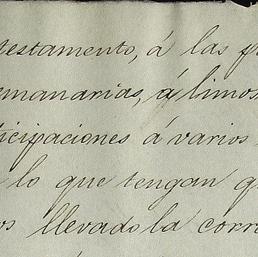 testamento, á las
emanarias, á limos
ticipaciones á varios
lo que tengan q
os llevado la corr